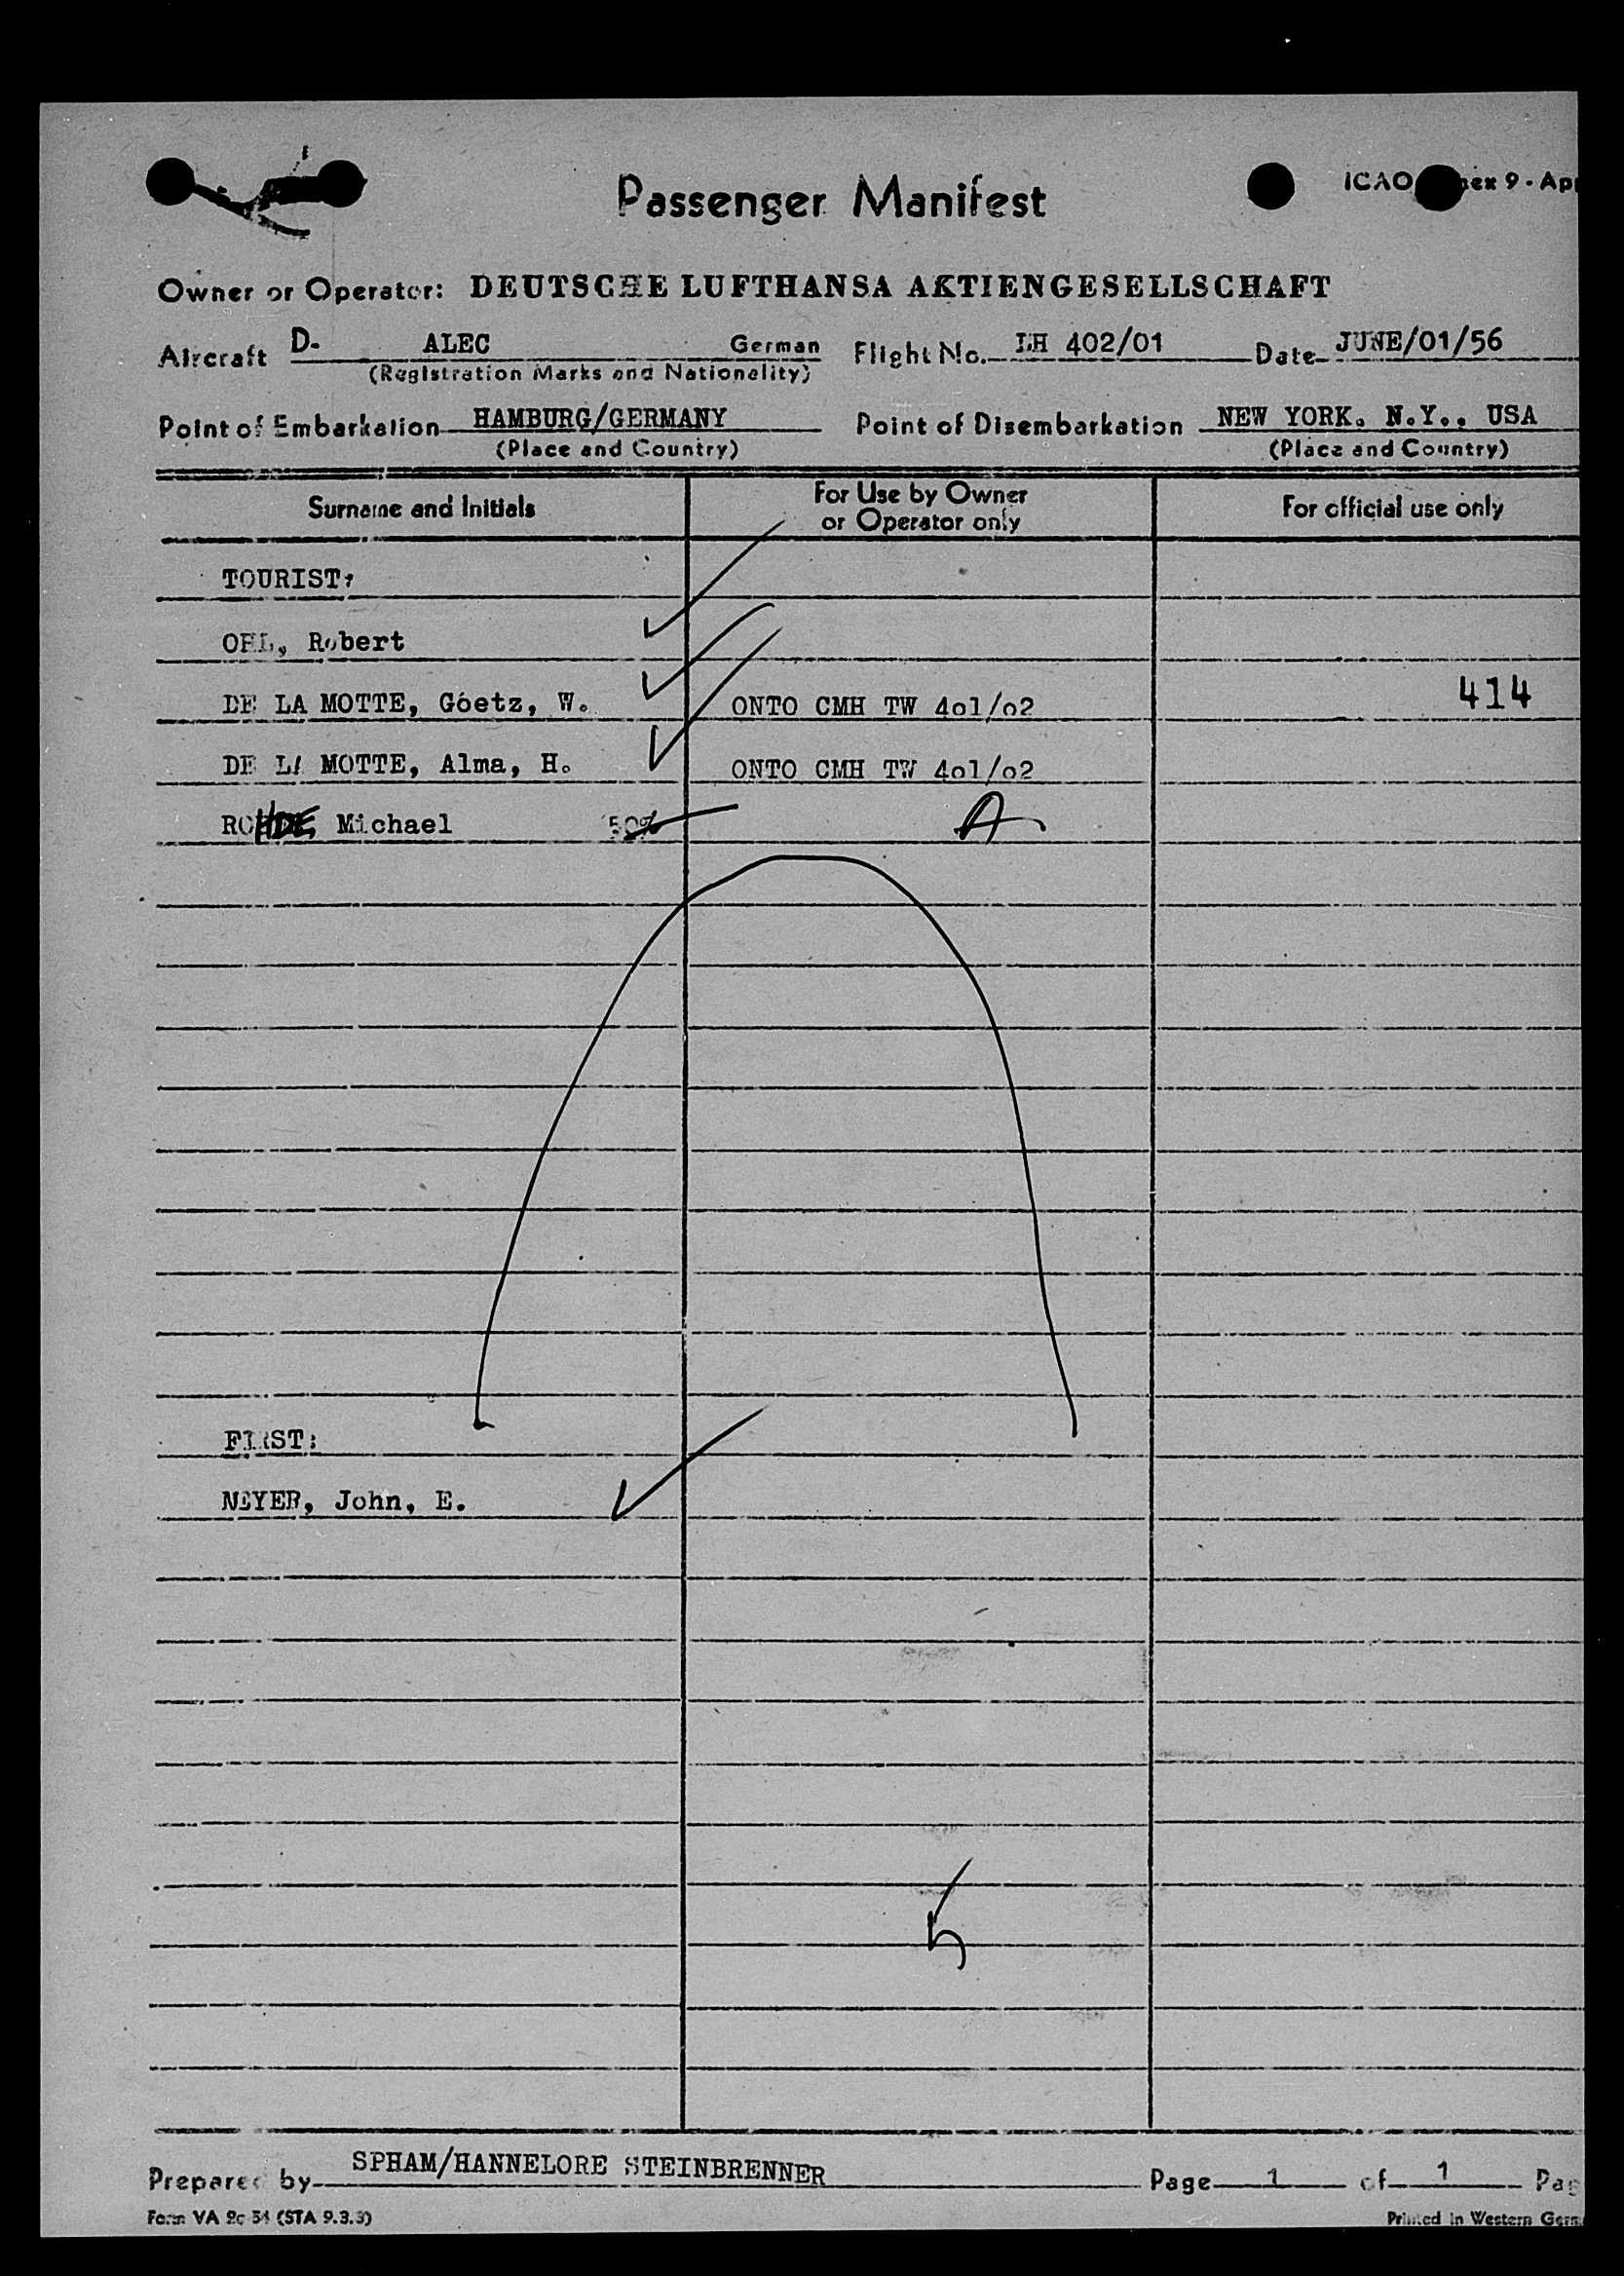 Passenger Manifest
ICAO
9 - Ap
Owner or Operator: DEUTSCHE LUFTHANSA AKTIENGESELLSCHAFT
Aircraft D- ALEC German Flight No. LH 402/01 Date JUNE/01/56
(Registration Marks and Nationality)
Point of Embarkation HAMBURG/GERMANY Point of Disembarkation NEW YORK. N.Y., USA
(Place and Country) (Place and Country)
Surname and Initials For Use by Owner or Operator only For official use only
TOURIST:
Robert
DE LA MOTTE, Goetz, W. ONTO CMH TW 4o1/o2 414
DE LA MOTTE, Alma, H. ONTO CMH TW 4o1/o2
ROHDE Michael 50% A
FIRST:
MEYER, John, E.
5
Prepared by SPHAM/HANNELORE STEINBRENNER Page 1 of 1 Pag
Form VA 2c 54 (STA 9.3.3) Printed in Western Germ